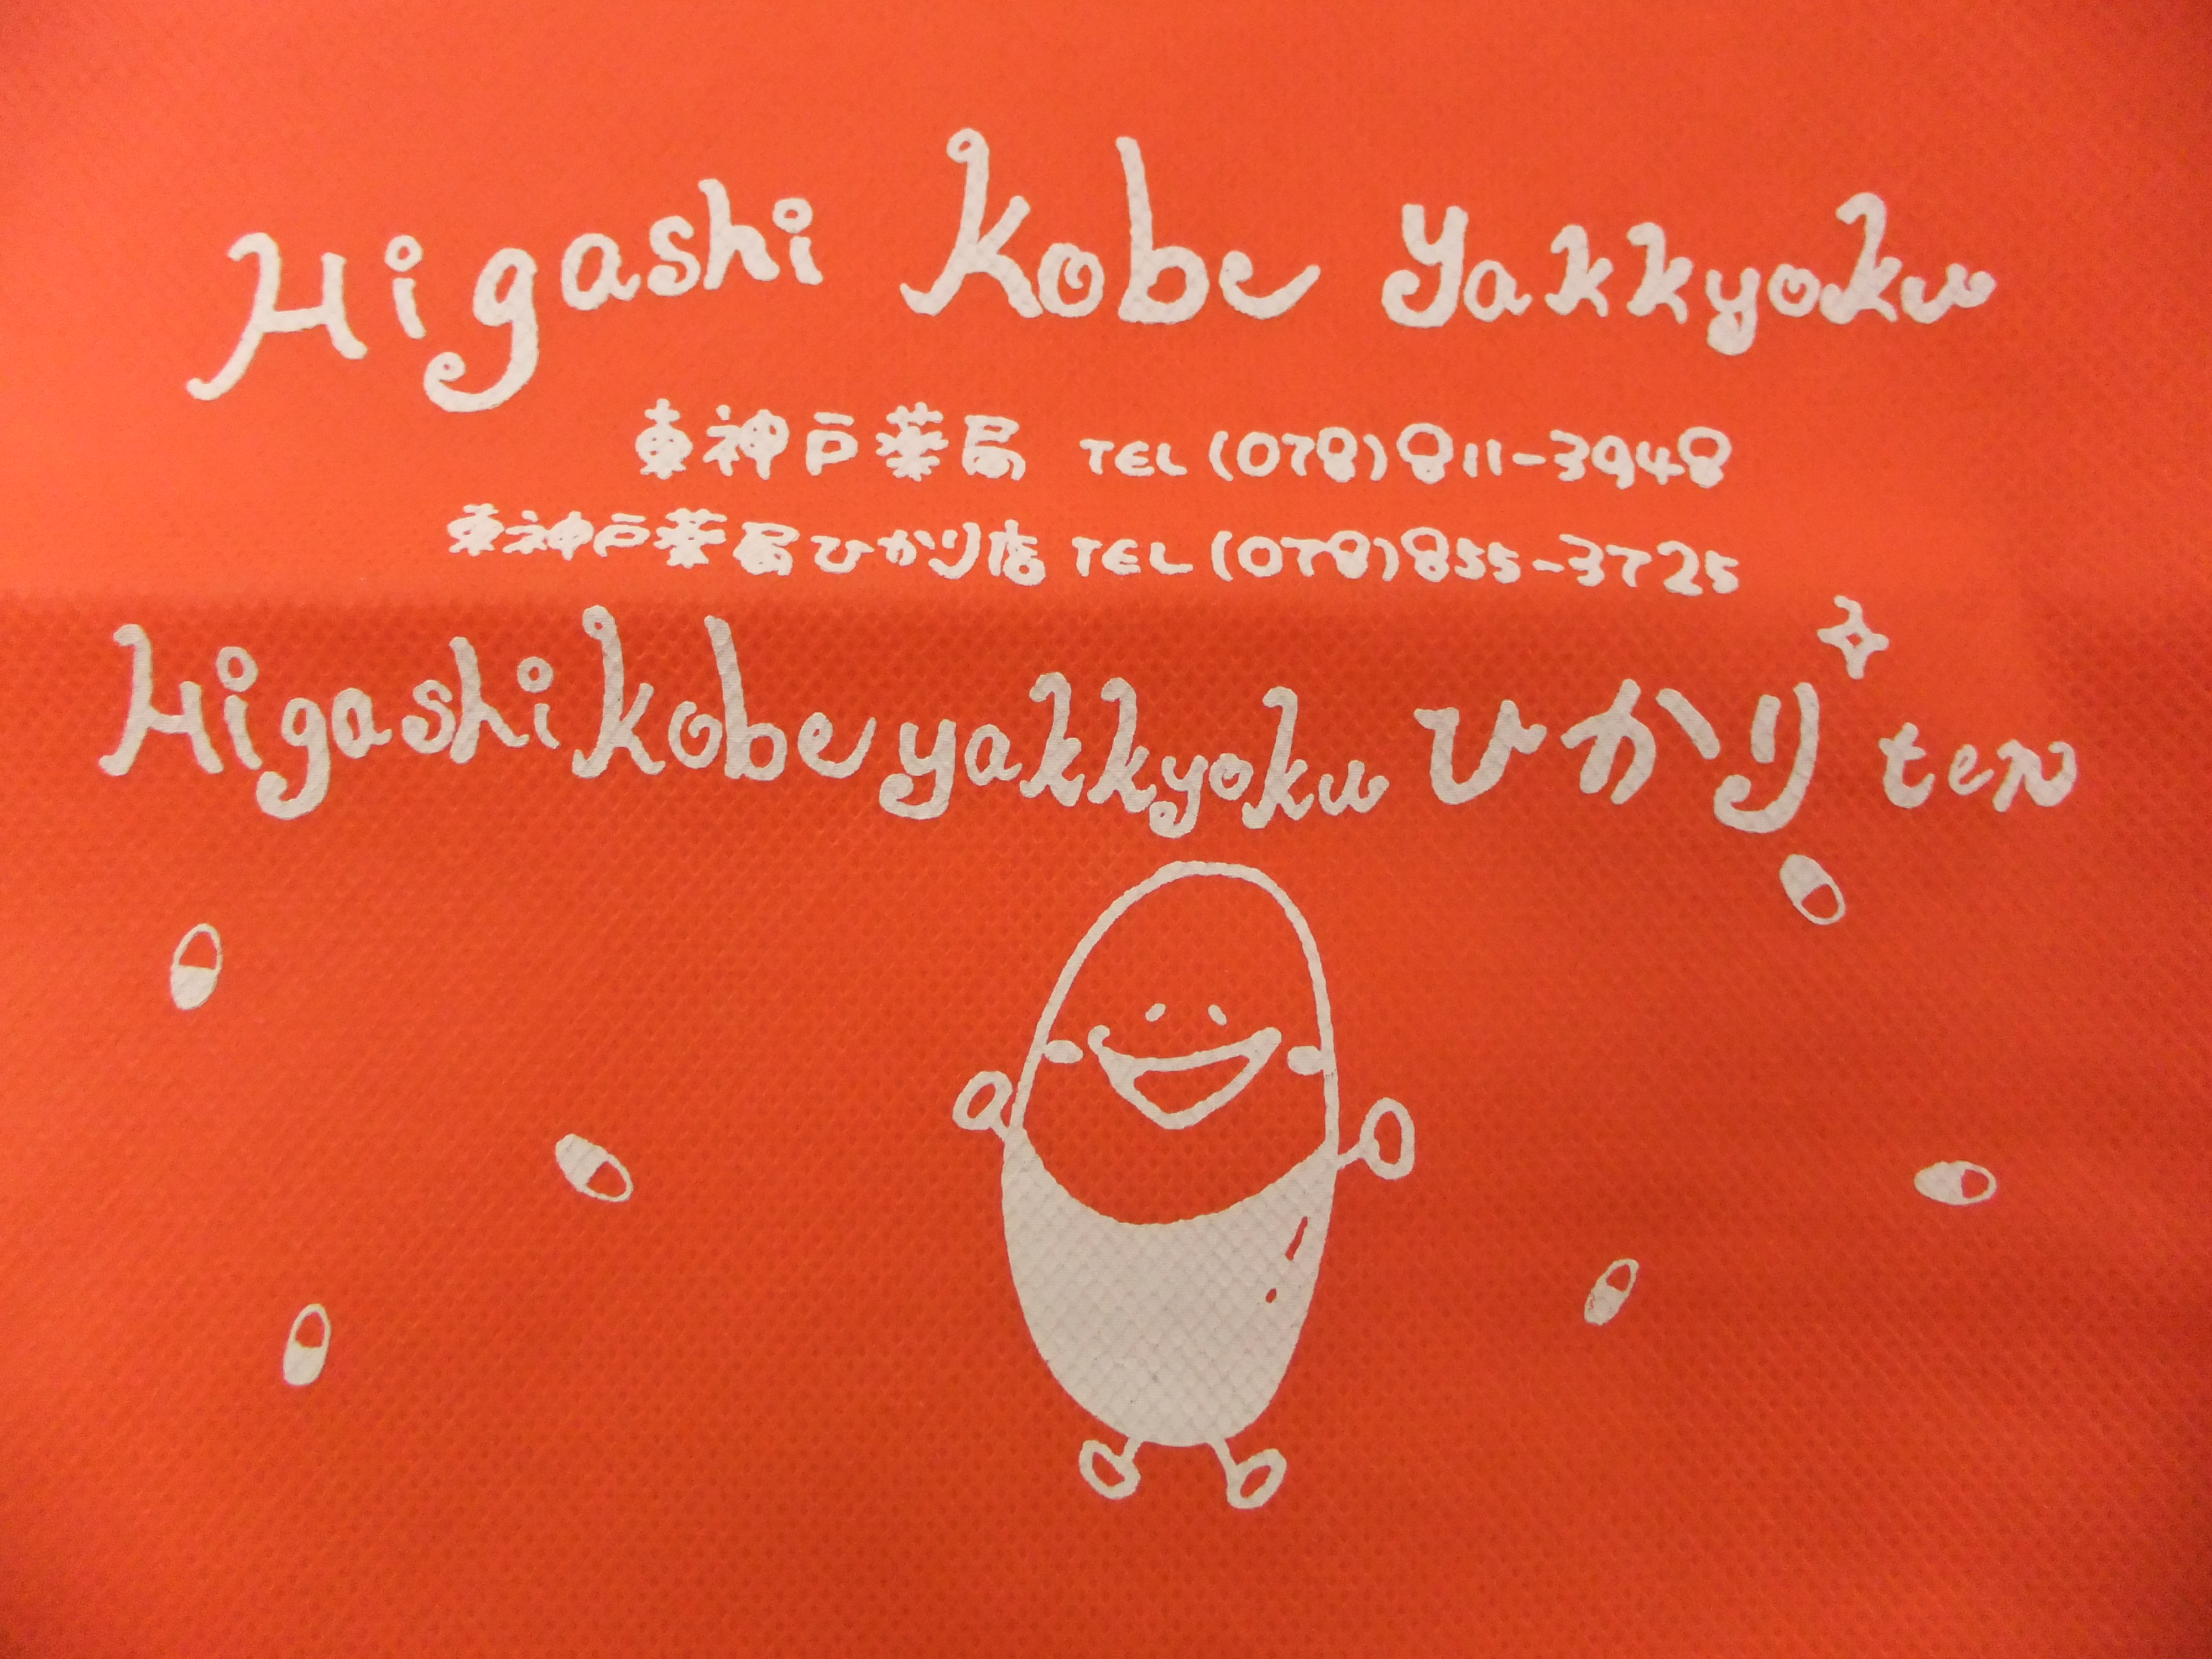 Higashi Kobe Yakkyoku
東神戸薬局 TEL (078) 811-3948
東神戸薬局ひかり店 TEL (078) 855-3725
Higashi Kobe yakkyoku ひかり ten